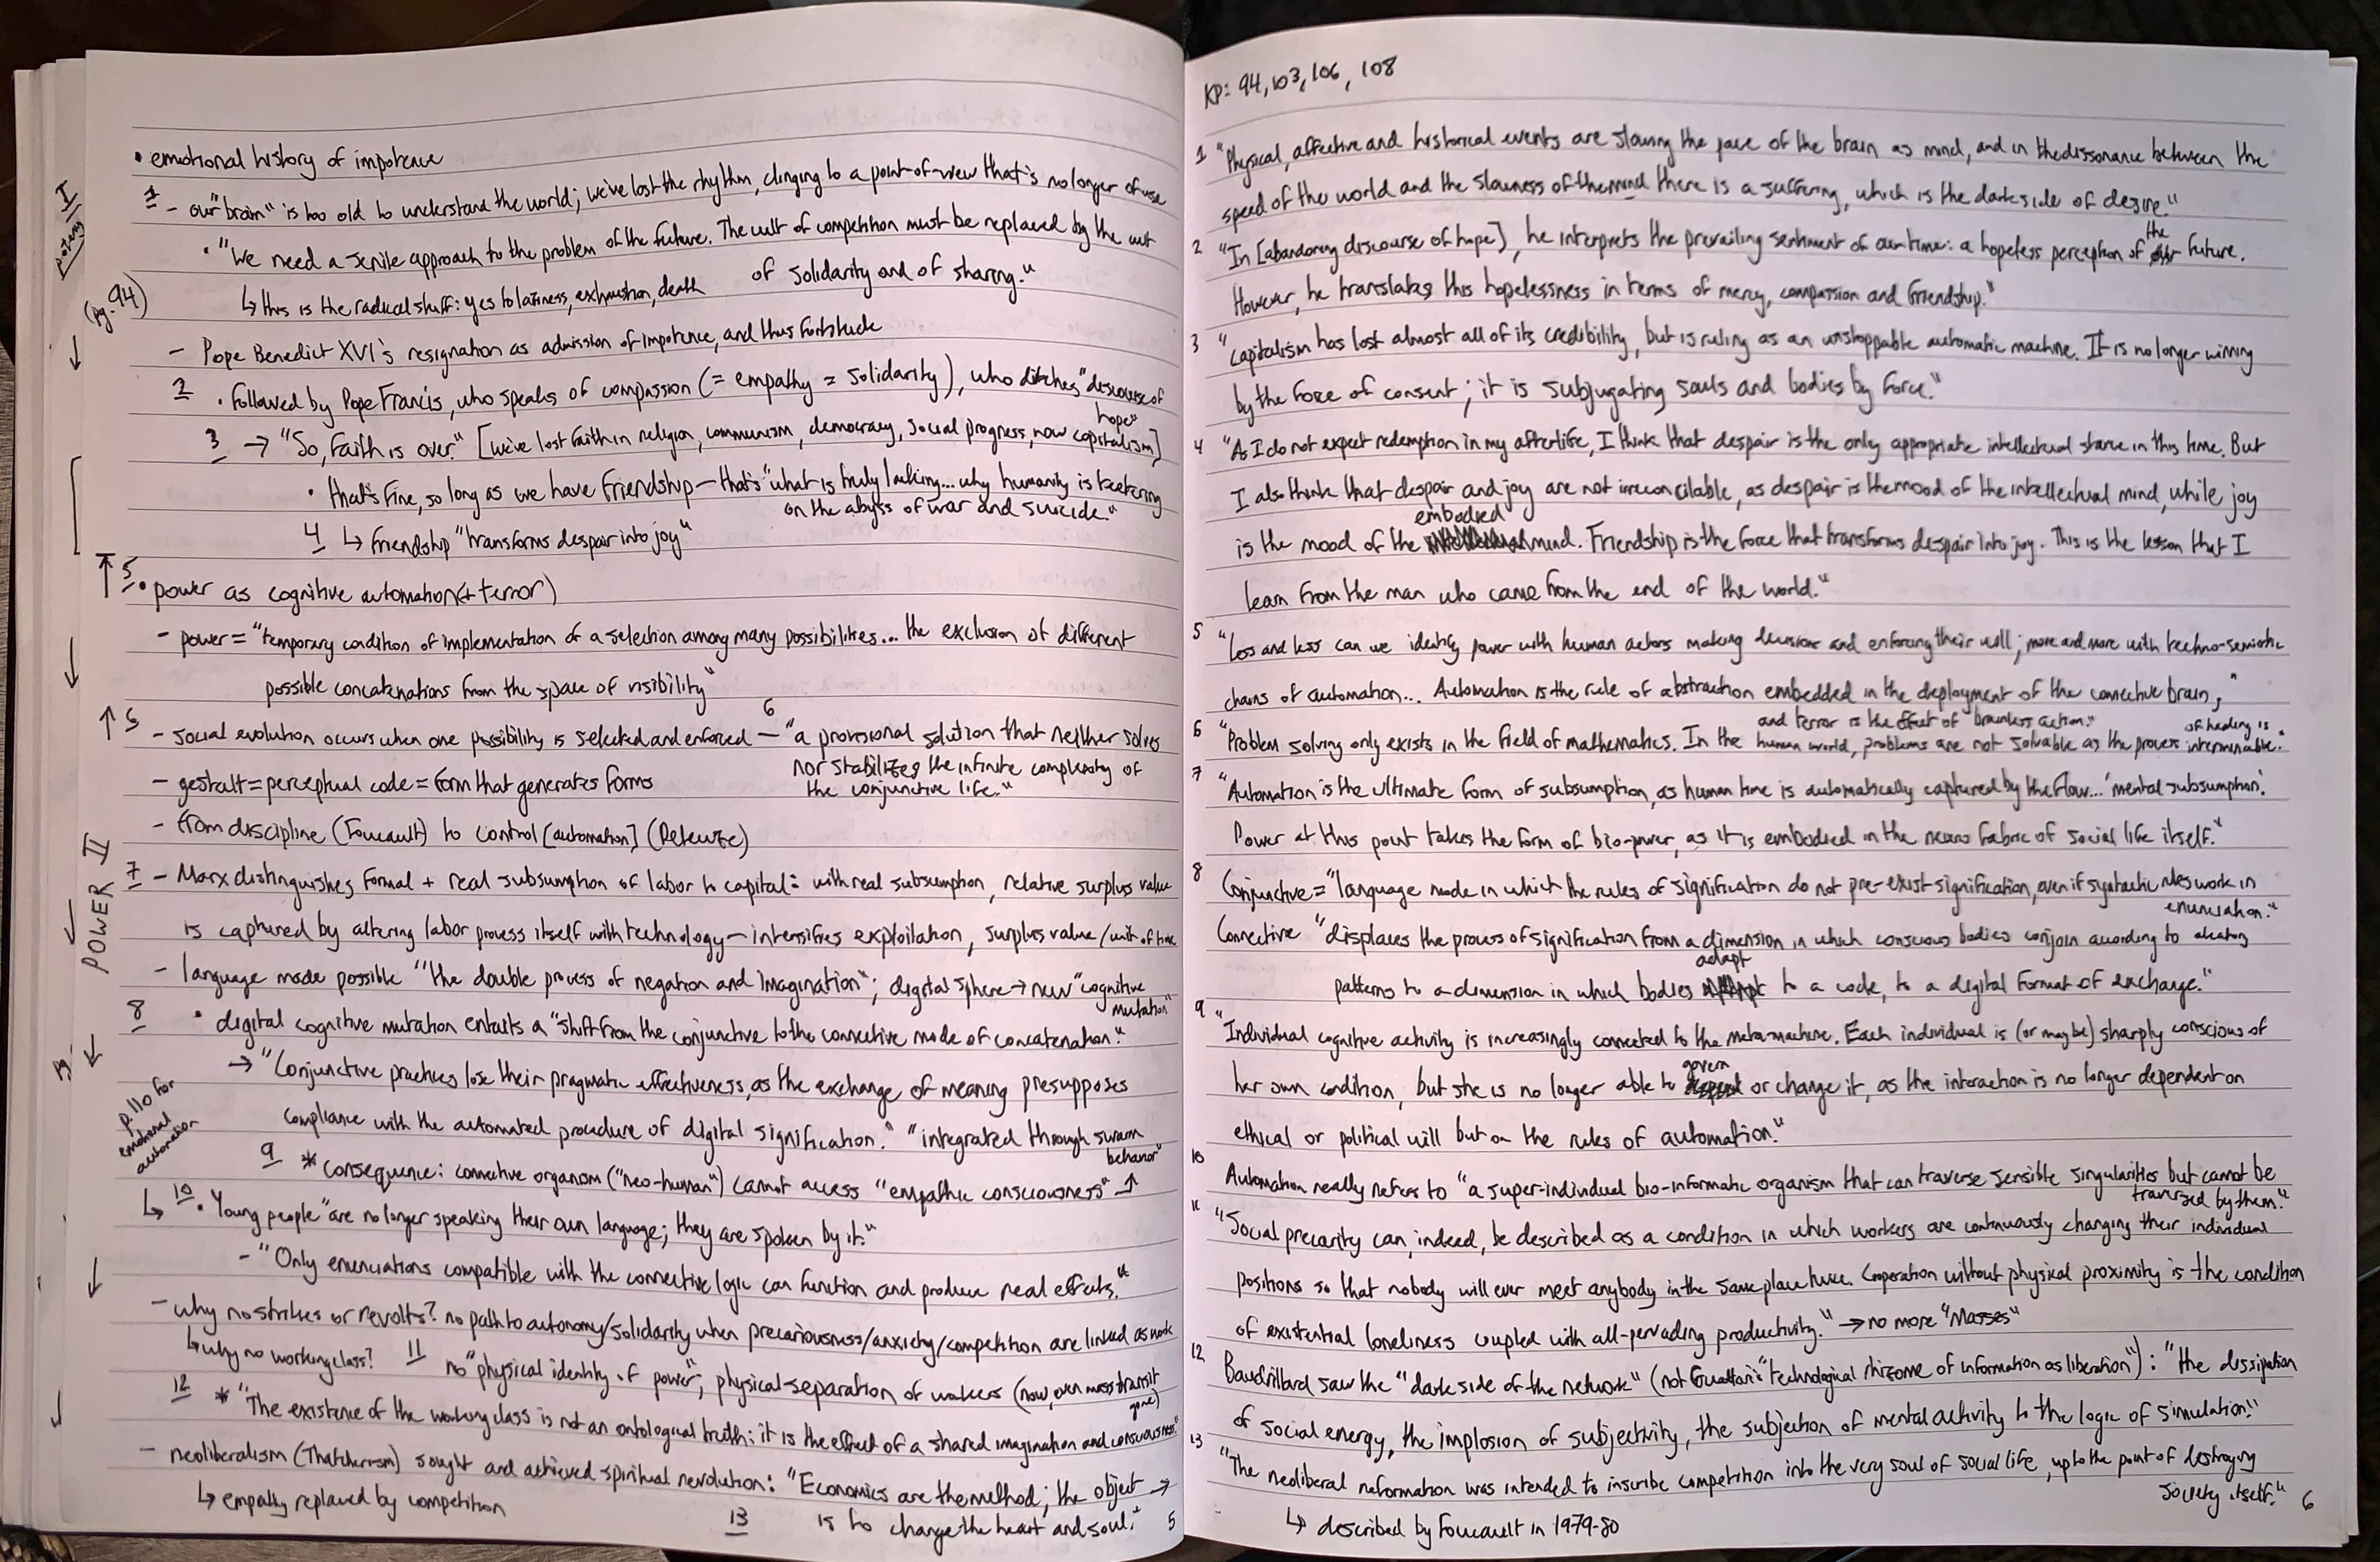 • emotional history of impotence
1 - our "brain" is too old to understand the world; we've lost the rhythm, clinging to a point-of-view that's no longer of use
• "We need a senile approach to the problem of the future. The cult of competition must be replaced by the cult
of solidarity and of sharing."
↳ this is the radical stuff: yes to laziness, exhaustion, death
- Pope Benedict XVI's resignation as admission of impotence, and thus fortitude
2 • followed by Pope Francis, who speaks of compassion (= empathy = solidarity), who ditches "discourse of
hope"
3 → "So, faith is over." [we've lost faith in religion, communism, democracy, social progress, now capitalism]
• that's fine, so long as we have friendship — that's "what is truly lacking... why humanity is teetering
on the abyss of war and suicide."
4 ↳ friendship "transforms despair into joy"
5 • power as cognitive automation (+ terror)
- power = "temporary condition of implementation of a selection among many possibilities... the exclusion of different
possible concatenations from the space of visibility"
- social evolution occurs when one possibility is selected and enforced — 6 "a provisional solution that neither solves
nor stabilizes the infinite complexity of
the conjunctive life."
- gestalt = perceptual code = form that generates forms
- from discipline (Foucault) to control [automation] (Deleuze)
7 - Marx distinguishes formal + real subsumption of labor to capital: with real subsumption, relative surplus value
is captured by altering labor process itself with technology — intensifies exploitation, surplus value/unit of time
- language made possible "the double process of negation and imagination"; digital sphere → new "cognitive
mutation"
8 • digital cognitive mutation entails a "shift from the conjunctive to the connective mode of concatenation."
→ "Conjunctive practices lose their pragmatic effectiveness, as the exchange of meaning presupposes
compliance with the automated procedure of digital signification." "integrated through swarm
behavior"
9 * consequence: connective organism ("neo-human") cannot access "empathic consciousness" ↗
↳ 10 • Young people "are no longer speaking their own language; they are spoken by it."
- "Only enunciations compatible with the connective logic can function and produce real effects."
- why no strikes or revolts? no path to autonomy/solidarity when precariousness/anxiety/competition are linked as work
↳ why no working class? 11 no "physical identity of power"; physical separation of workers (now, even mass transit
gone)
12 * "The existence of the working class is not an ontological truth: it is the effect of a shared imagination and consciousness."
- neoliberalism (Thatcherism) sought and achieved spiritual revolution: "Economics are the method; the object →
↳ empathy replaced by competition
13 is to change the heart and soul." 5
I
potency
(pg. 94)
↑ 5
POWER II
pg.
p. 110 for
emotional
automation
KP: 94, 103, 106, 108
1 "Physical, affective and historical events are slowing the pace of the brain as mind, and in the dissonance between the
speed of the world and the slowness of the mind there is a suffering, which is the dark side of desire."
2 "In [abandoning discourse of hope], he interprets the prevailing sentiment of our time: a hopeless perception of the future.
However, he translates this hopelessness in terms of mercy, compassion and friendship."
3 "Capitalism has lost almost all of its credibility, but is ruling as an unstoppable automatic machine. It is no longer winning
by the force of consent; it is subjugating souls and bodies by force."
4 "As I do not expect redemption in my afterlife, I think that despair is the only appropriate intellectual stance in this time. But
I also think that despair and joy are not irreconcilable, as despair is the mood of the intellectual mind, while joy
is the mood of the embodied mind. Friendship is the force that transforms despair into joy. This is the lesson that I
learn from the man who came from the end of the world."
5 "Less and less can we identify power with human actors making decisions and enforcing their will; more and more with techno-semiotic
chains of automation... Automation is the rule of abstraction embedded in the deployment of the connective brain,"
and terror is the effect of "brainless action."
6 "Problem solving only exists in the field of mathematics. In the human world, problems are not solvable as the process of healing is interminable."
7 "Automation is the ultimate form of subsumption, as human time is automatically captured by the flow... 'mental subsumption'.
Power at this point takes the form of bio-power, as it is embodied in the neuro fabric of social life itself."
8 Conjunctive = "language mode in which the rules of signification do not pre-exist signification, even if syntactic rules work in
enunciation."
Connective "displaces the process of signification from a dimension in which conscious bodies conjoin according to aleatory
patterns to a dimension in which bodies adapt to a code, to a digital format of exchange."
9 "Individual cognitive activity is increasingly connected to the meta-machine. Each individual is (or may be) sharply conscious of
her own condition, but she is no longer able to govern or change it, as the interaction is no longer dependent on
ethical or political will but on the rules of automation."
10 Automation really refers to "a super-individual bio-informatic organism that can traverse sensible singularities but cannot be
traversed by them."
11 "Social precarity can, indeed, be described as a condition in which workers are continuously changing their individual
positions so that nobody will ever meet anybody in the same place twice. Cooperation without physical proximity is the condition
of existential loneliness coupled with all-pervading productivity." → no more "Masses"
12 Baudrillard saw the "dark side of the network" (not Guattari's "technological rhizome of information as liberation"): "the dissipation
of social energy, the implosion of subjectivity, the subjection of mental activity to the logic of simulation."
13 "The neoliberal reformation was intended to inscribe competition into the very soul of social life, up to the point of destroying
society itself." 6
↳ described by Foucault in 1979-80